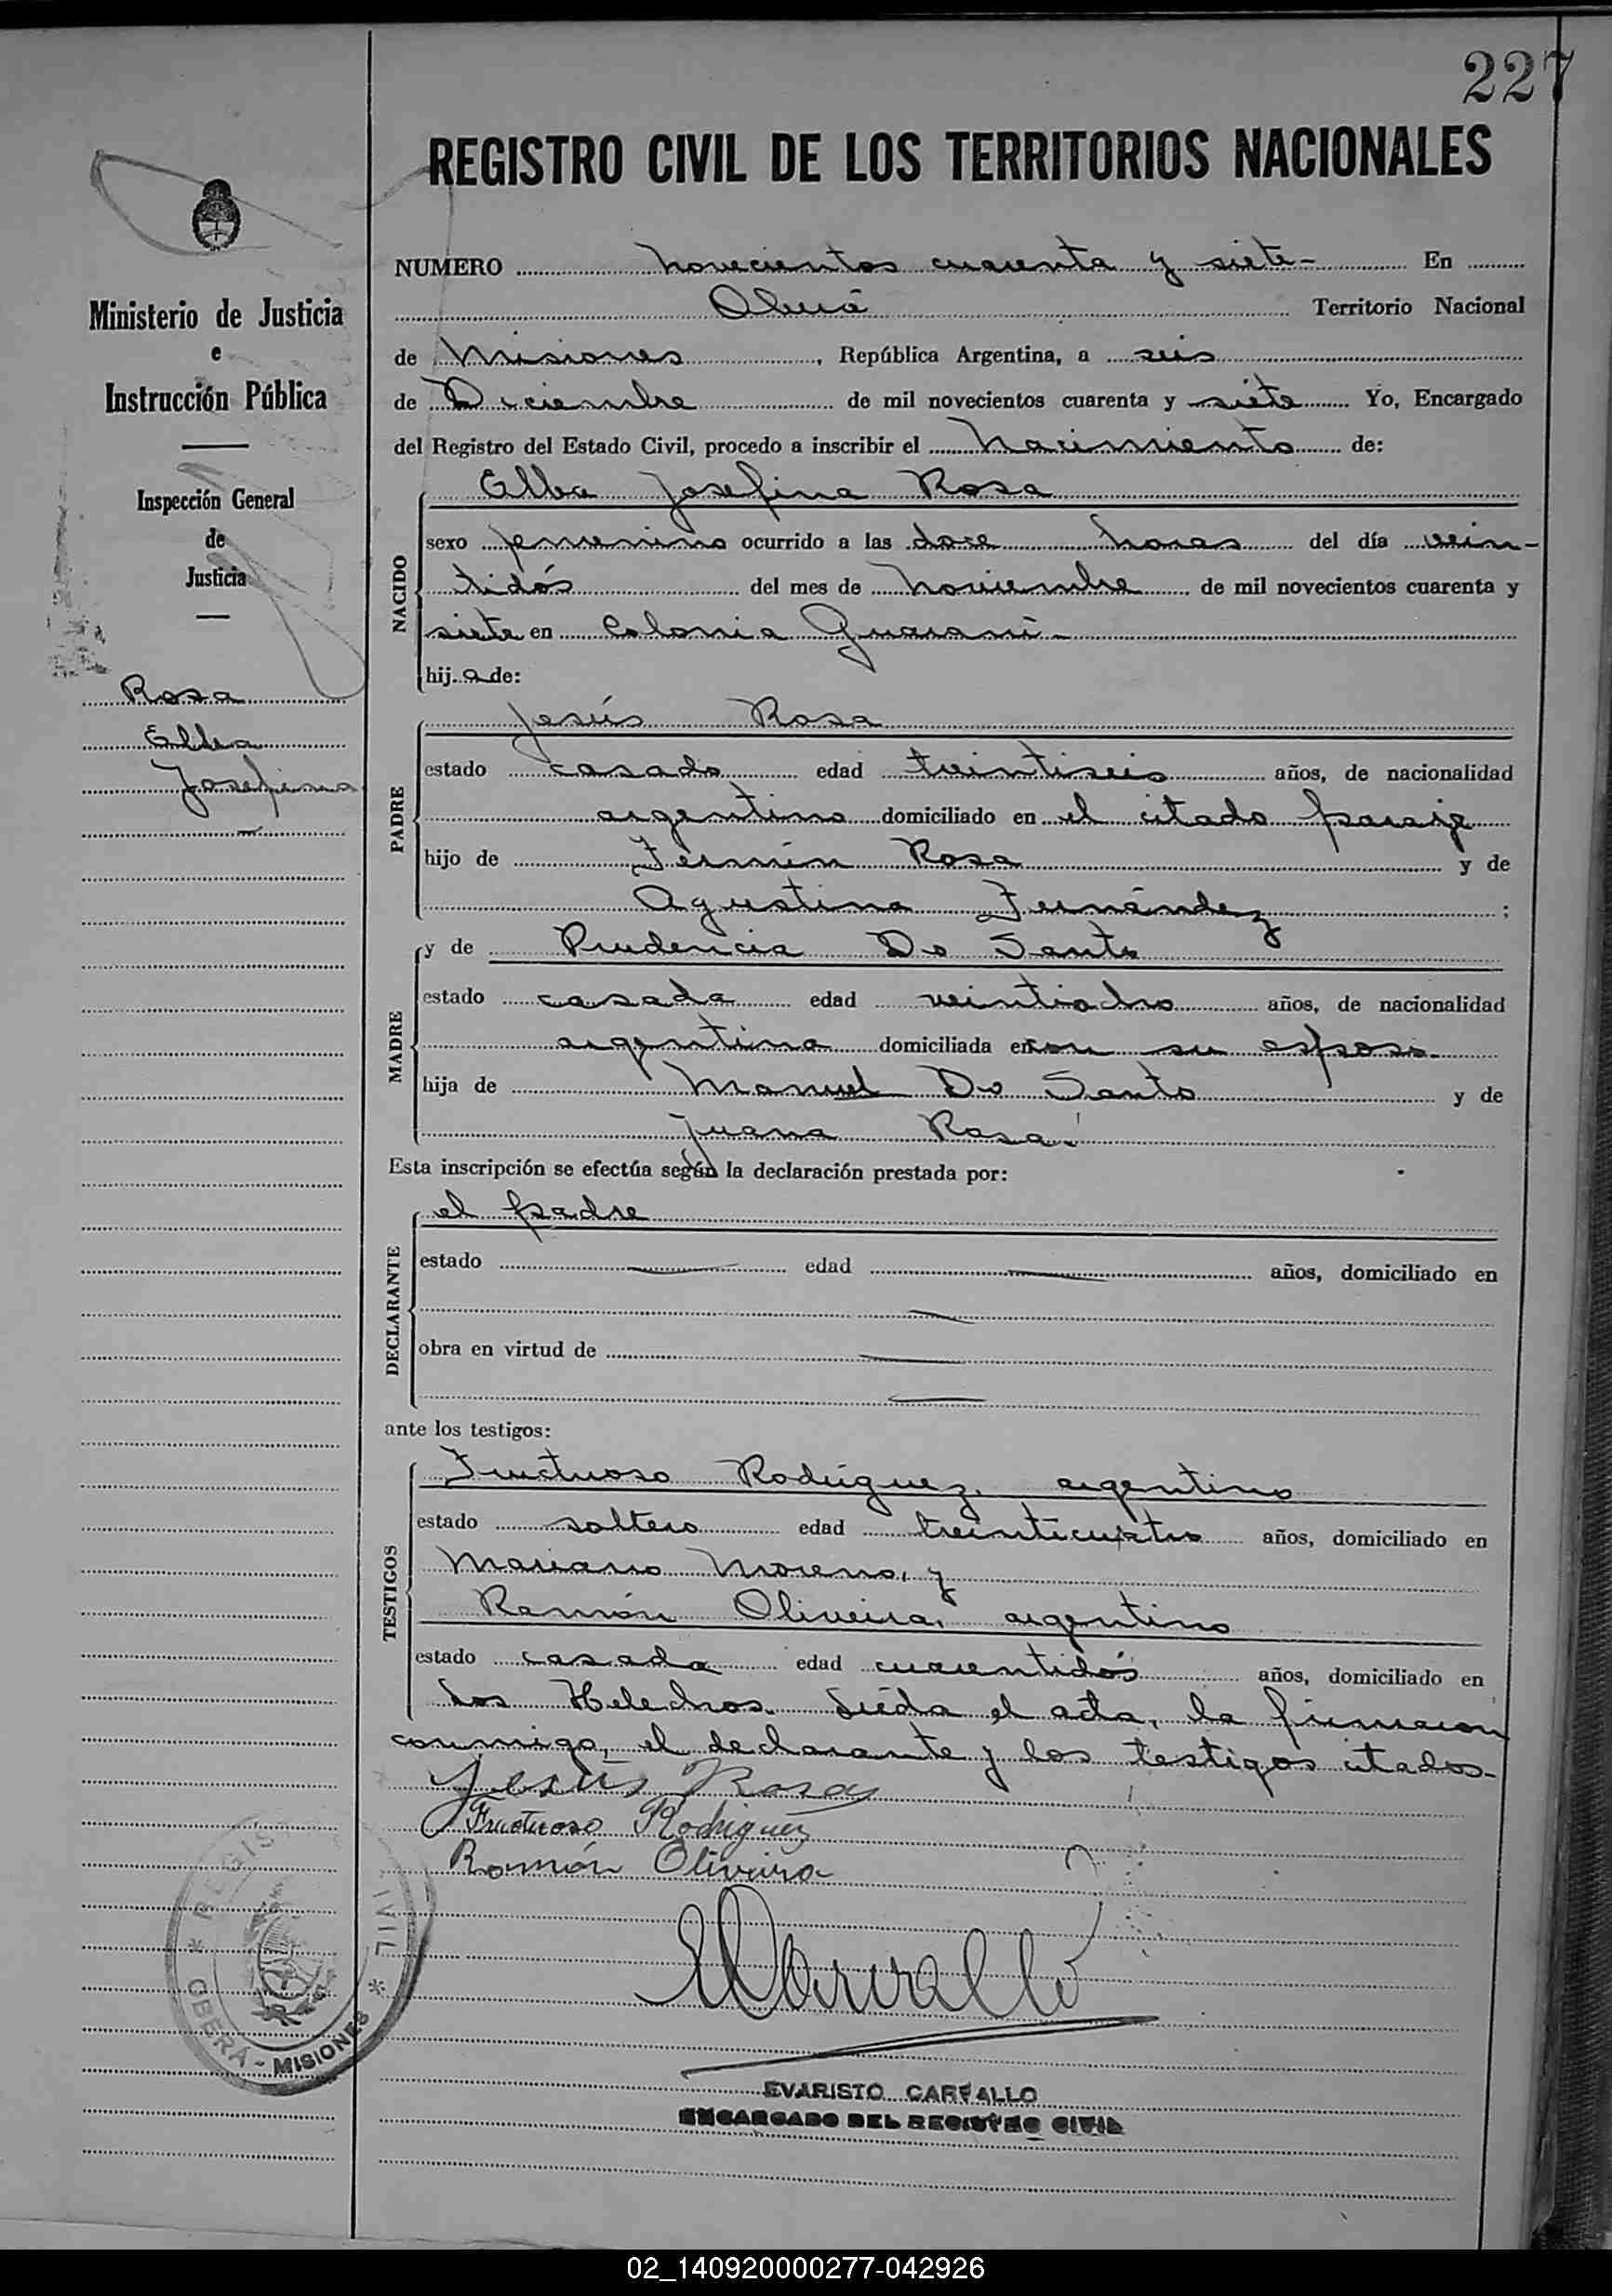 227
REGISTRO CIVIL DE LOS TERRITORIOS NACIONALES
Ministerio de Justicia
e
Instrucción Pública
Inspección General
de
Justicia
Rosa
Elba
Josefina
NUMERO novecientos cuarenta y siete- En
Oberá Territorio Nacional
de Misiones, República Argentina, a seis
de Diciembre de mil novecientos cuarenta y siete Yo, Encargado
del Registro del Estado Civil, procedo a inscribir el nacimiento de:
Elba Josefina Rosa
NACIDO
sexo femenino ocurrido a las doce horas del día vein-
tidós del mes de noviembre de mil novecientos cuarenta y
siete en Colonia Guaraní-
hija de:
Jesús Rosa
PADRE
estado casado edad treintiseis años, de nacionalidad
argentina domiciliado en el citado paraje
hijo de Fermín Rosa y de
Agustina Fernández;
y de Prudencia Do Santo
MADRE
estado casada edad veintiocho años, de nacionalidad
argentina domiciliada en con su esposo-
hija de Manuel Do Santo y de
Juana Rosa.
Esta inscripción se efectúa según la declaración prestada por:
el padre
DECLARANTE
estado edad años, domiciliado en
obra en virtud de
ante los testigos:
TESTIGOS
Fructuoso Rodríguez, argentino
estado soltero edad treinticuatro años, domiciliado en
Mariano Moreno, y
Ramón Oliveira, argentino
estado casado edad cuarentidós años, domiciliado en
Los Helechos. Leída el acta, la firmaron
conmigo, el declarante y los testigos citados-
Jesús Rosa
Fructuoso Rodriguez
Ramón Oliveira
ECarvallo
REGIS IVIL * OBERA - MISIONES *
EVARISTO CARVALLO
ENCARGADO DEL REGISTRO CIVIL
02_140920000277-042926